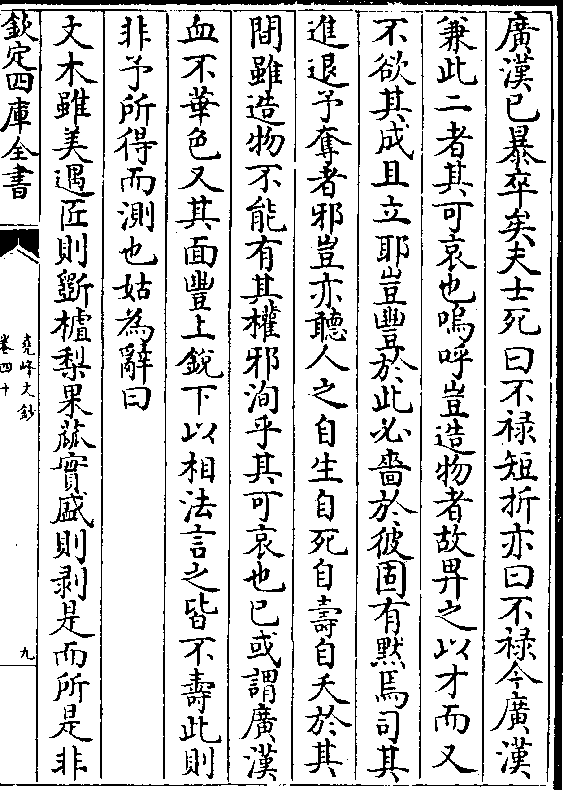 廣漢已暴卒矣夫士死曰不祿短折亦曰不祿今廣漢
兼此二者其可哀也嗚呼豈造物者故畀之以才而又
不欲其成且立耶豈豐於此必嗇於彼固有默焉司其
進退予奪者邪豈亦聽人之自生自死自壽自夭於其
間雖造物不能有其權邪洵乎其可哀也已或謂廣漢
血不華色又其面豐上銳下以相法言之皆不壽此則
非予所得而測也姑為辭曰
文木雖美遇匠則斵樝梨果蓏實盛則剥是而所是非
欽定四庫全書
堯峰文鈔
卷四十
九